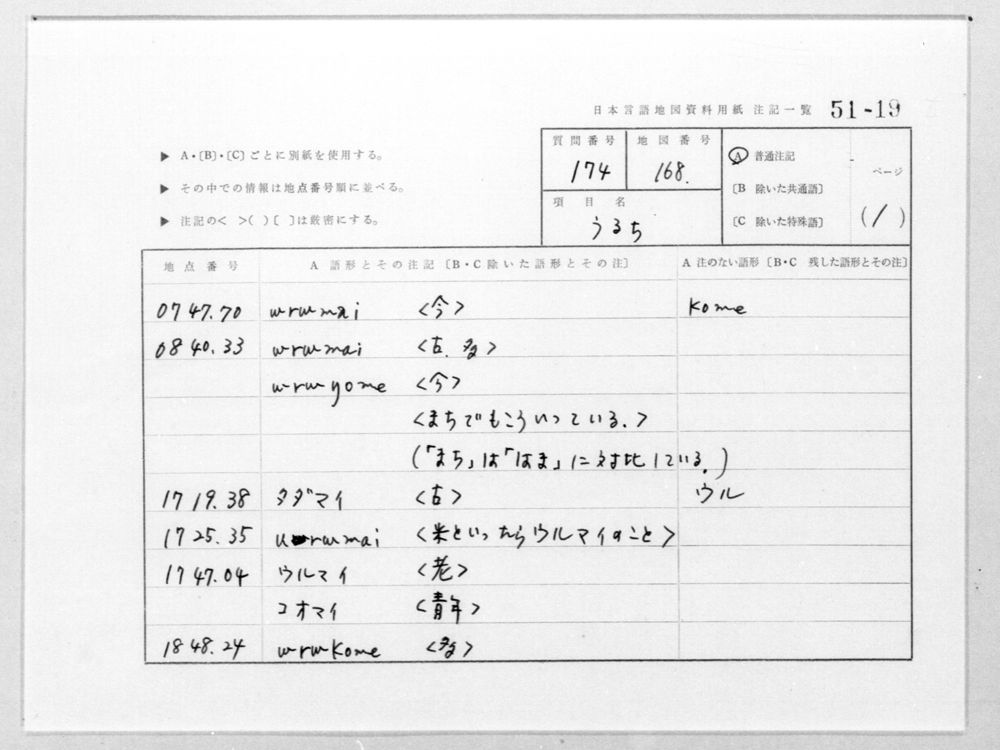 日本言語地図資料用紙 注記一覧 51-19
▶ A・〔B〕・〔C〕ごとに別紙を使用する。
▶ その中での情報は地点番号順に並べる。
▶ 注記の< >( )〔 〕は厳密にする。
質問番号 地図番号
174 168.
項目名
うるち
A 普通注記
〔B 除いた共通語〕
〔C 除いた特殊語〕
ページ
(1)
地点番号 A 語形とその注記〔B・C除いた語形とその注〕 A 注のない語形〔B・C 残した語形とその注〕
0747.70 ɯrɯmai <今> kome
0840.33 ɯrɯmai <古. 多>
ɯrɯgome <今>
<まちでもこういっている.>
(「まち」は「はま」に対比している.)
1719.38 タダマイ <古> ウル
1725.35 urɯmai <米といったらウルマイのこと>
1747.04 ウルマイ <老>
コオマイ <青年>
1848.24 ɯrɯkome <多>